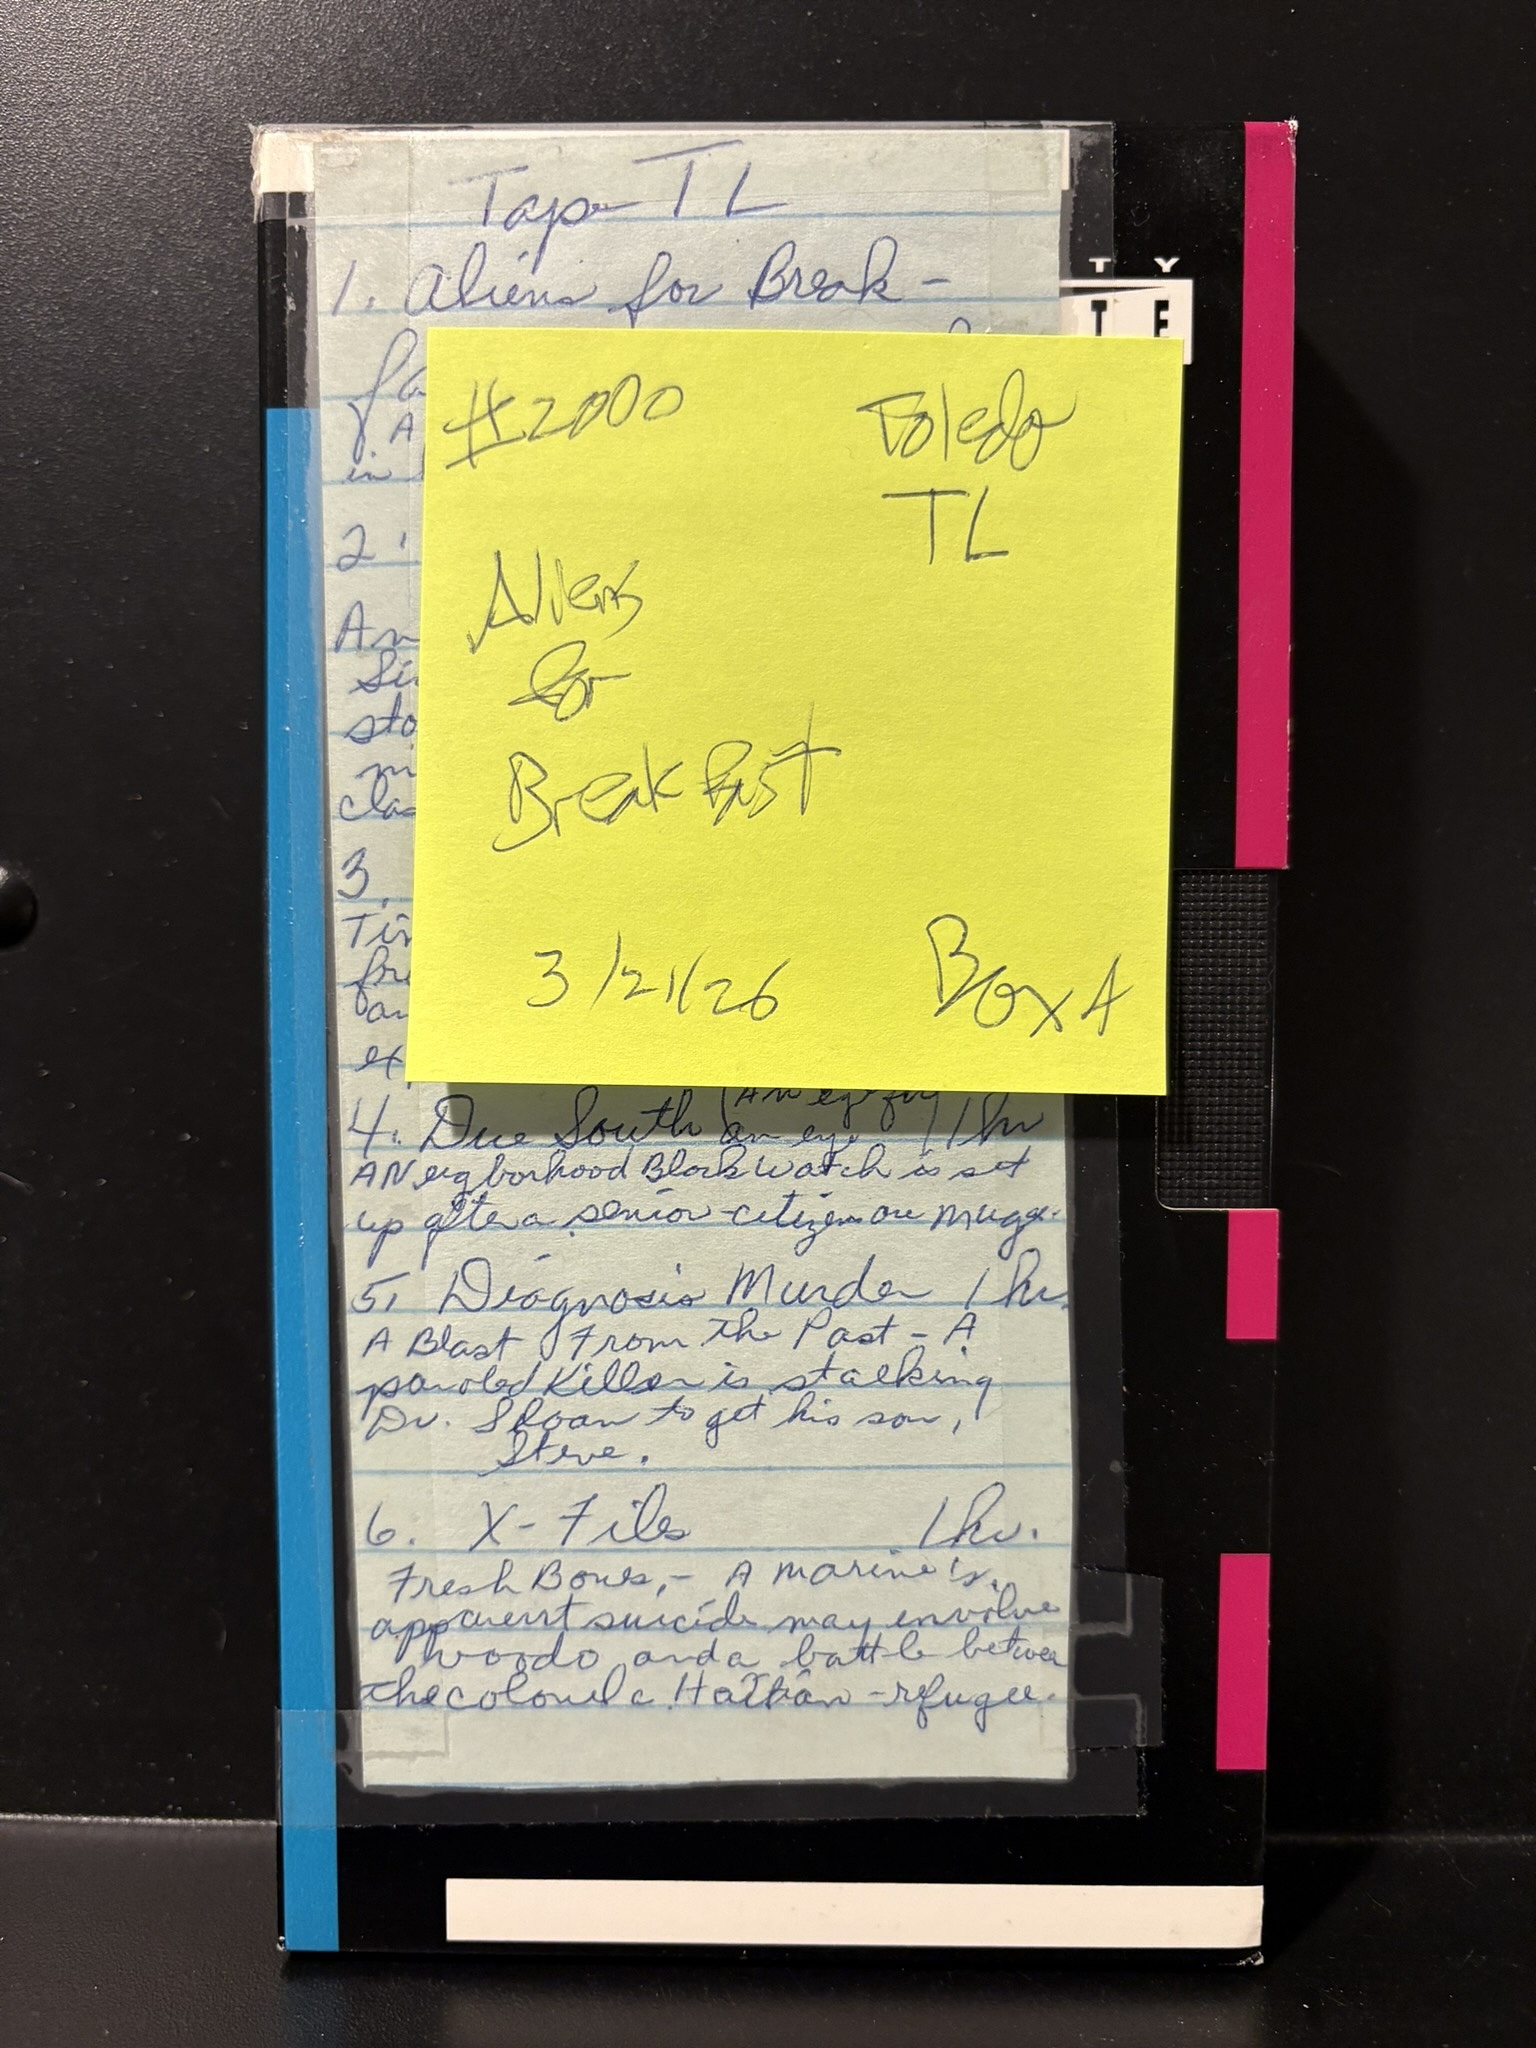 Tape TL
1. Aliens for Break-
fa
A
in
2.
An
Si
sto
m
clas
3.
Tim
fre
an
ex
#2000
Toledo
TL
Aliens
for
Breakfast
3/21/26
Box A
T Y
T E
4. Due South (An eye for an eye) 1 hr
A Neighborhood Block Watch is set
up after a senior-citizen are mugge
5. Diagnosis Murder 1 hr.
A Blast From the Past - A
paroled Killer is stalking
Dr. Sloan to get his son,
Steve.
6. X-Files 1 hr.
Fresh Bones, - A marine's
apparent suicide may envolve
voodo and a battle between
the colonel a Haitian-refugee.